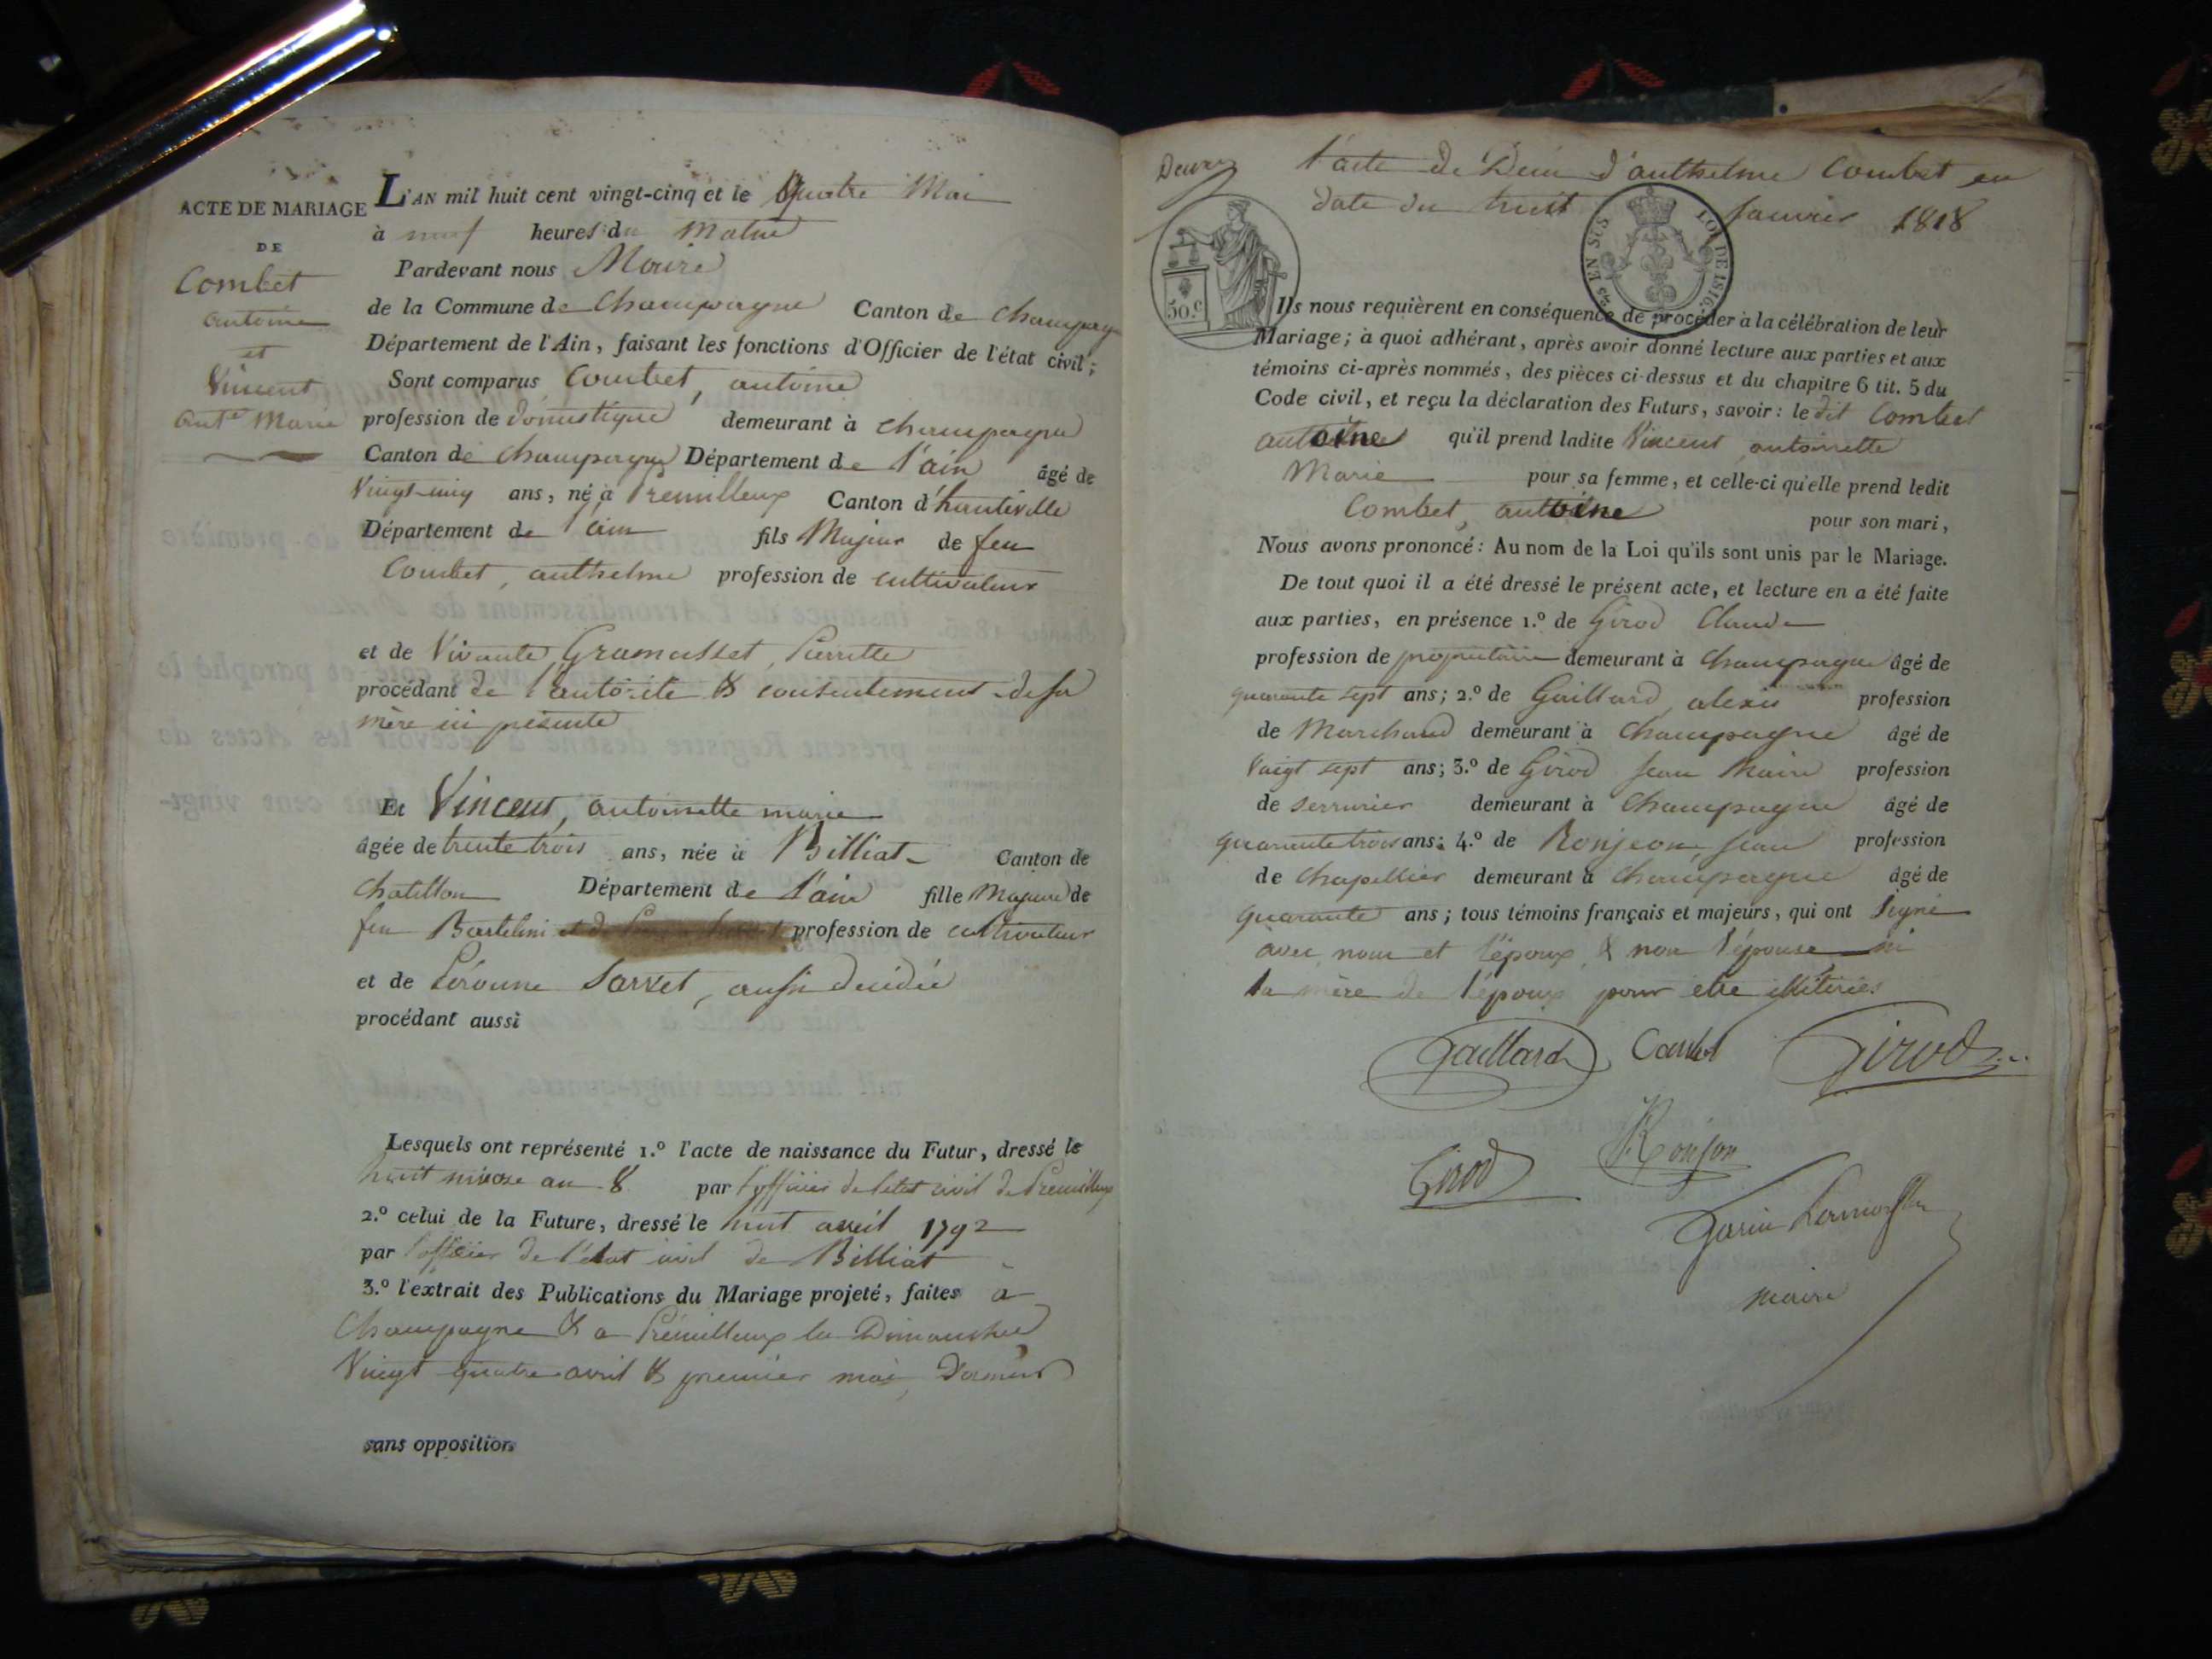 ACTE DE MARIAGE
DE
Combet
antoine
et
Vincent
Ant.e Marie
L'AN mil huit cent vingt-cinq et le Quatre Mai
à neuf heures du Matin
Pardevant nous Maire
de la Commune de Champagne Canton de Champagne
Département de l'Ain, faisant les fonctions d'Officier de l'état civil;
Sont comparus Combet, antoine
profession de domestique demeurant à champagne
Canton de Champagne Département de l'ain âgé de
Vingt-cinq ans, né à Premillieux Canton d'hauteville
Département de l'ain fils Majeur de feu
Combet, anthelme profession de cultivateur
et de Vivante Gramusset, Pierrette
procédant de l'autorité & consentement de sa
mère ici présente
Et Vincent, antoinette marie
âgée de trente trois ans, née à Billiat Canton de
Chatillon Département de l'ain fille Majeure de
feu Bartelmi profession de cultivateur
et de Péronne Sarvet, aussi décidée
procédant aussi
Lesquels ont représenté 1.º l'acte de naissance du Futur, dressé le
huit nivose an 8 par l'officier de l'etat civil de Premillieux
2.º celui de la Future, dressé le huit avril 1792
par l'officier de l'état civil de Billiat
3.º l'extrait des Publications du Mariage projeté, faites a
Champagne & a Prémillieux les Dimanches
Vingt quatre avril & premier mai, dernier
sans opposition
l'acte de Décès d'anthelme Combet en
date du huit Janvier 1818
50.c
25 EN SUS
LOI DE 1816.
Ils nous requièrent en conséquence de procéder à la célébration de leur
Mariage; à quoi adhérant, après avoir donné lecture aux parties et aux
témoins ci-après nommés, des pièces ci-dessus et du chapitre 6 tit. 5 du
Code civil, et reçu la déclaration des Futurs, savoir: le dit Combet
antoine qu'il prend ladite Vincent antoinette
Marie pour sa femme, et celle-ci qu'elle prend ledit
Combet, antoine pour son mari,
Nous avons prononcé: Au nom de la Loi qu'ils sont unis par le Mariage.
De tout quoi il a été dressé le présent acte, et lecture en a été faite
aux parties, en présence 1.º de Girod Claude
profession de propriétaire demeurant à Champagne âgé de
quarante sept ans; 2.º de Gaillard, alexis profession
de Marchand demeurant à Champagne âgé de
Vingt sept ans; 3.º de Girod Jean Marie profession
de serrurier demeurant à Champagne âgé de
quarante trois ans; 4.º de Ronjon, Jean profession
de Chapellier demeurant à Champagne âgé de
quarante ans; tous témoins français et majeurs, qui ont signé
avec nous et l'époux, & non l'épouse ni
la mère de l'époux pour etre illitérées
Gaillard Combet Girod
Girod Ronjon
maire